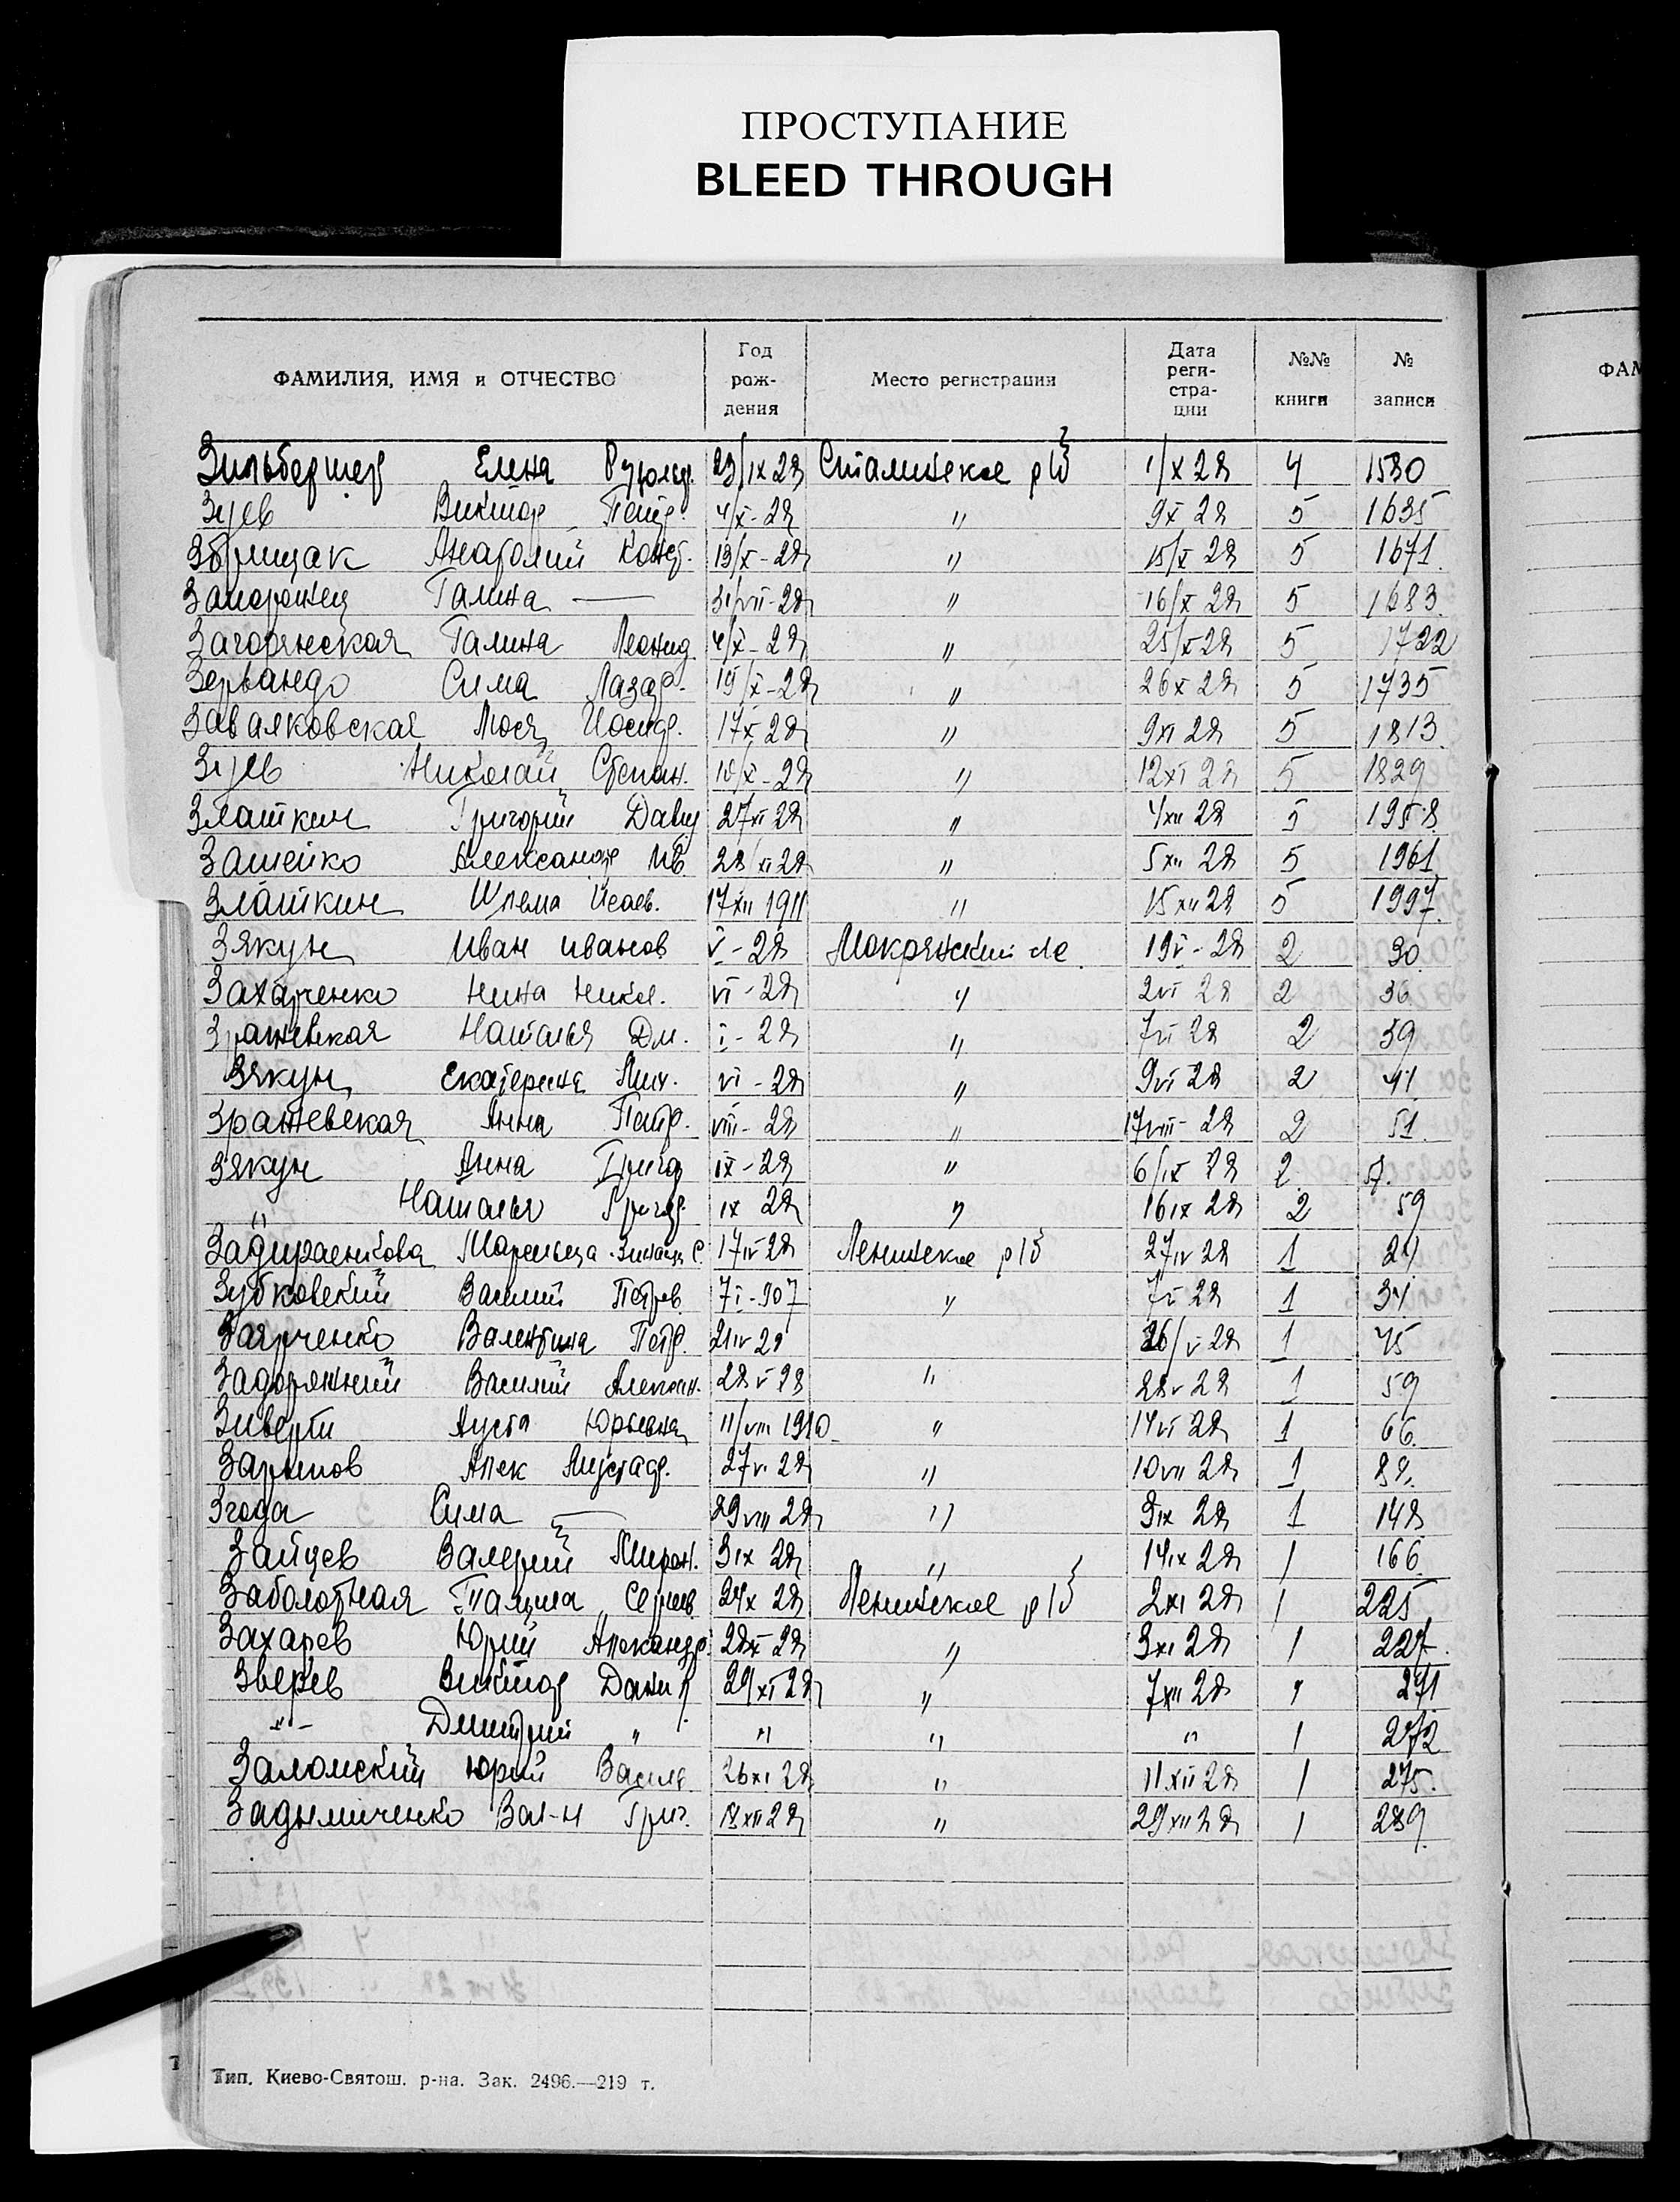 ПРОСТУПАНИЕ
BLEED THROUGH
ФАМИЛИЯ, ИМЯ и ОТЧЕСТВО Год рож- дения Место регистрации Дата реги- стра- ции №№ книги № записи
ФАМ
Елена 23/IX 28 Сталинское р/б 1/X 28 4 1580
Зуев Виктор Петр. 4/X-28 " 9X 28 5 1635
Анатолий Конст. 13/X-28 " 15/X 28 5 1671
Запорожец Галина — 31/VII-28 " 16/X 28 5 1683
Загорянская Галина Леонид. 4/X-28 " 25/X 28 5 1722
Сима Лазар. 19/X-28 " 26X 28 5 1735
Иосиф. 17X 28 " 9XI 28 5 1813
Зуев Николай Степан. 10/X-28 " 12XI 28 5 1829
Златкин Григорий Давид 27XI 28 " 4XII 28 5 1958
Александр Ив. 28/XI 28 " 5XII 28 5 1961
Златкин Шлема Исаев. 17XII 1911 " 15XII 28 5 1997
Зякун Иван Иванов V-28 Мокрянский 19V-28 2 30
Захарченко Нина Никол. VI-28 " 2VI 28 2 36
Наталья Дм. " 7VI 28 2 39
Зякун Екатерина Мих. VI-28 " 9VI 28 2 41
Зражевская Анна Петр. VIII-28 " 17VIII-28 2 51
Зякун Анна Григор IX-28 " 6/IX 28 2
" Наталья Григор. IX 28 " 16IX 28 2 59
17IV 28 Ленинское р/б 27IV 28 1 24
Зубковский Василий Петров 7I-907 " 7V 28 1 34
Валентина Петр. 21IV 28 26/V 28 1 45
Задорожний Василий Алексан. 28V 28 " 28V 28 1 59
Зиверт Юрьевна 11/VIII 1910 " 14VI 28 1 66
Зарипов 27VI 28 " 10VII 28 1
Згода Сима — 29VIII 28 " 3IX 28 1 148
Зайцев Валерий Мирон. 3IX 28 " 14IX 28 1 166
Заболотная Сергеев 24X 28 Ленинское р/б 2XI 28 1 225
Захаров Юрий Александр. 28X 28 " 3XI 28 1 227
Зверев Виктор Данил 29XI 28 " 7XII 28 1 271
-"- Дмитрий " " " " 1 272
Заломский Юрий Васил. 26XI 28 " 11XII 28 1 275
Задымиченко Вал-н Григ. 18XII 28 " 29XII 28 1 289
Тип. Киево-Святош. р-на. Зак. 2496.—219 т.